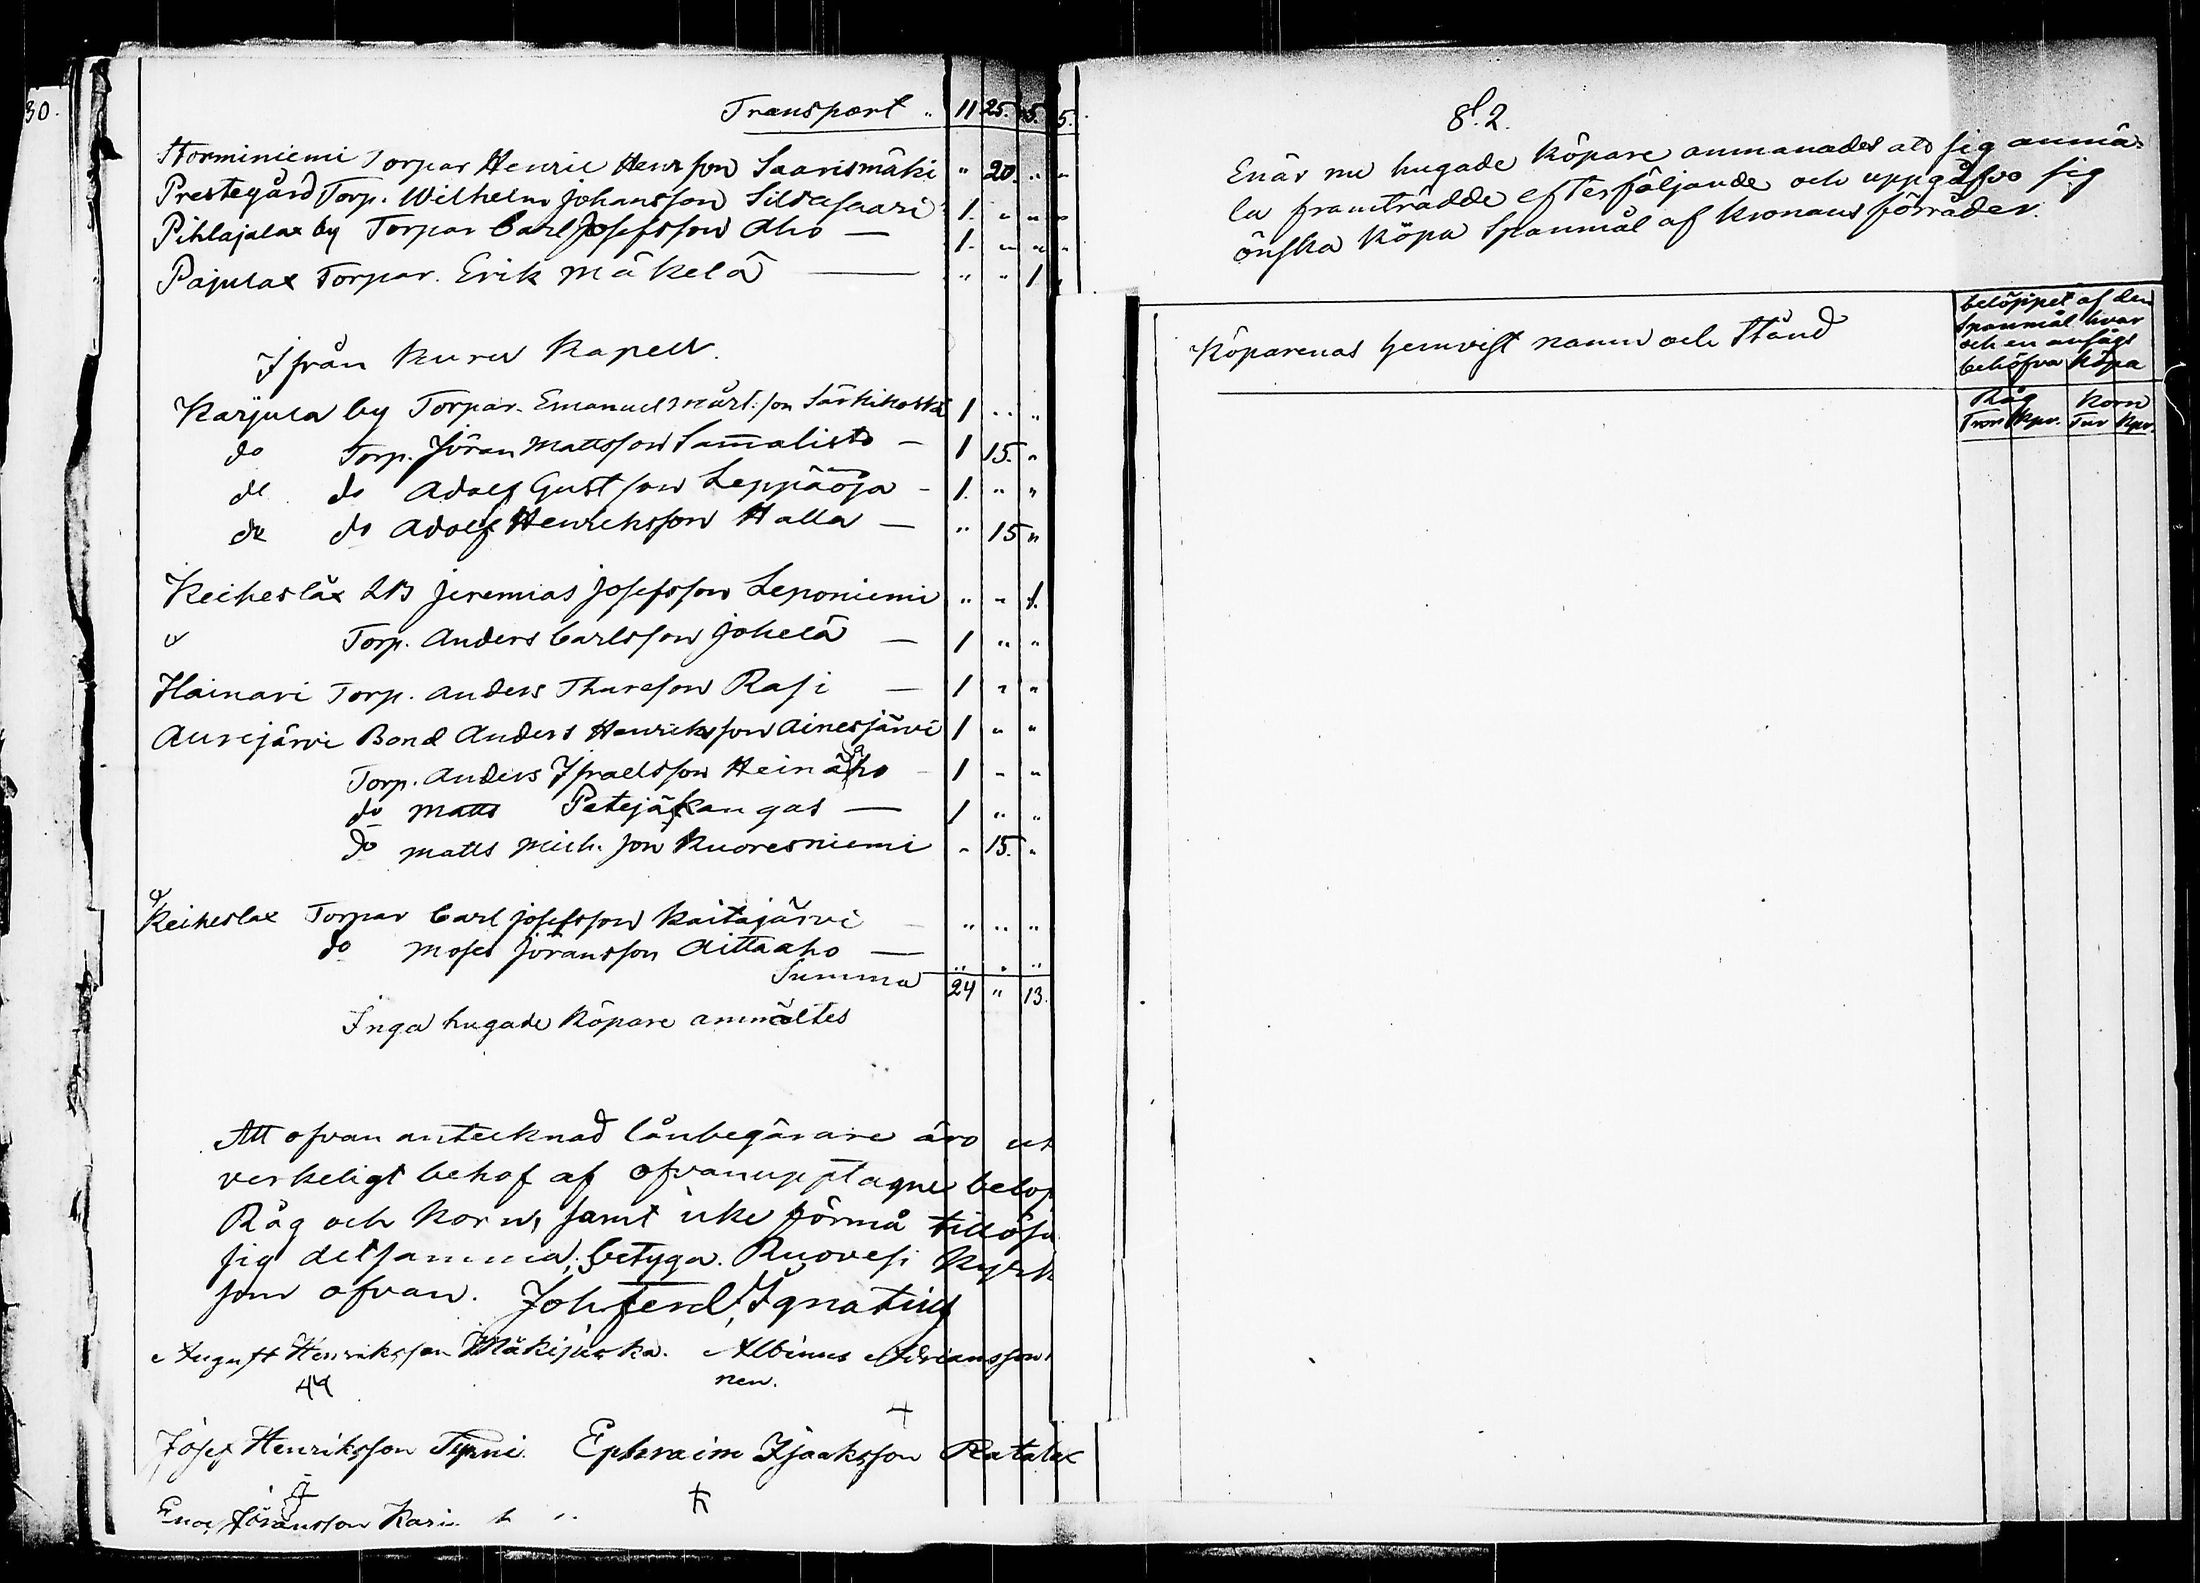 30.
Transport .. 11 25. 5. 5.
Storminiemi Torpar Henric Henr son Saarismäki " 20. " "
Prestegård Torp. Wilhelm Johansson Siltasaari 1. " " "
Pihlajalax by Torpar Carl Josefsson Aho — 1. " " "
Pajulax Torpar. Erik Mäkelä — " " 1
Ifrån Kuru Kapell.
Karjula by Torpar. Emanuel Mårt. son Särkikoski 1 " "
do Torp. Jöran Mattsson Samalisto — 1 15. "
de do Adolf Gustson Leppäoja - 1. " "
de do Adolf Henricksson Halla — " 15 "
Keiheslax Jeremias Josefsson Leponiemi " " 1.
" Torp. Anders Carlsson Jokelä — 1 " "
Hainari Torp. Anders Thureson Rasi — 1 " "
Aurejärvi Bond Anders Henricksson Ainesjärvi 1 " "
Torp. Anders Israelsson Heinäaho - 1 " "
do Matts Petejäkangas — 1 " "
do Matts Mich. son Kuoresniemi " 15. "
Keiheslax Torpar Carl Josefsson Kaitajärvi " " "
do Moses Jöransson Aittaaho — " " "
Summa 24 " 13.
Inga hugade Köpare anmältes
Att ofvan antecknad lånbegärare äro ut
verkeligt behof af ofvanupptagne belop
Råg och Korn, samt icke förmå
sig detsamma; betyga. Ruovesi Kyrk
som ofvan. Joh. Ferd. Ignatius
August Henriksson Mäkijuska. Albinus Adriansson
nen.
Josef Henriksson Tyrni. Ephraim Isaaksson
Enoc Jöransson Kari
§. 2.
Enär nu hugade Köpare anmanades att sig anmä-
la framträdde efterföljande och uppgåfvo sig
önska Köpa Spanmål af Kronans förråder.
Köparenas hemvist namn och Stånd
beloppet af den
Spanmål hvar
och en ansågs
behöfva Köpa
Råg Korn
Tnr Kpr. Tnr Kpr.